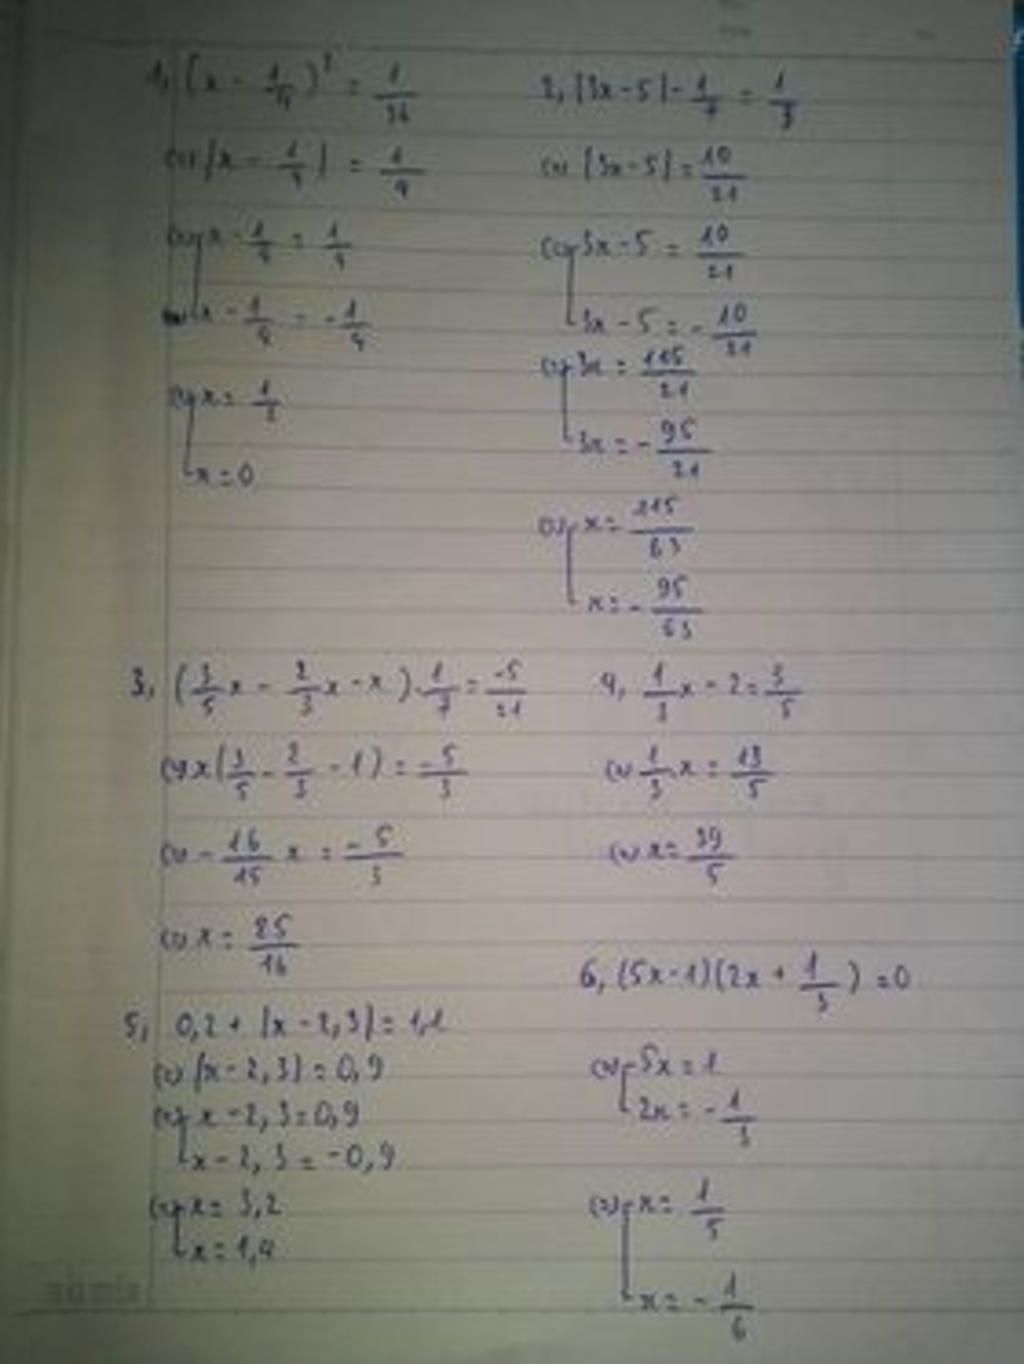 1, (x - 1/4)² = 1/16
(=) |x - 1/4| = 1/4
(=) [x - 1/4 = 1/4
x - 1/4 = -1/4
(=) [x = 1/2
x = 0
2, |3x - 5| - 1/7 = 1/3
(=) |3x - 5| = 10/21
(=) [3x - 5 = 10/21
3x - 5 = - 10/21
(=) [3x = 115/21
3x = - 95/21
(=) [x = 115/63
x = - 95/63
3, (3/5x - 2/3x - x) . 1/7 = -5/21
(=) x(3/5 - 2/3 - 1) = -5/3
(=) - 16/15 x = -5/3
(=) x = 25/16
4, 1/3x - 2 = 3/5
(=) 1/3 x = 13/5
(=) x = 39/5
5, 0,2 + |x - 2,3| = 1,1
(=) |x - 2,3| = 0,9
(=) [x - 2,3 = 0,9
x - 2,3 = -0,9
(=) [x = 3,2
x = 1,4
6, (5x - 1)(2x + 1/3) = 0
(=) [5x = 1
2x = - 1/3
(=) [x = 1/5
x = - 1/6